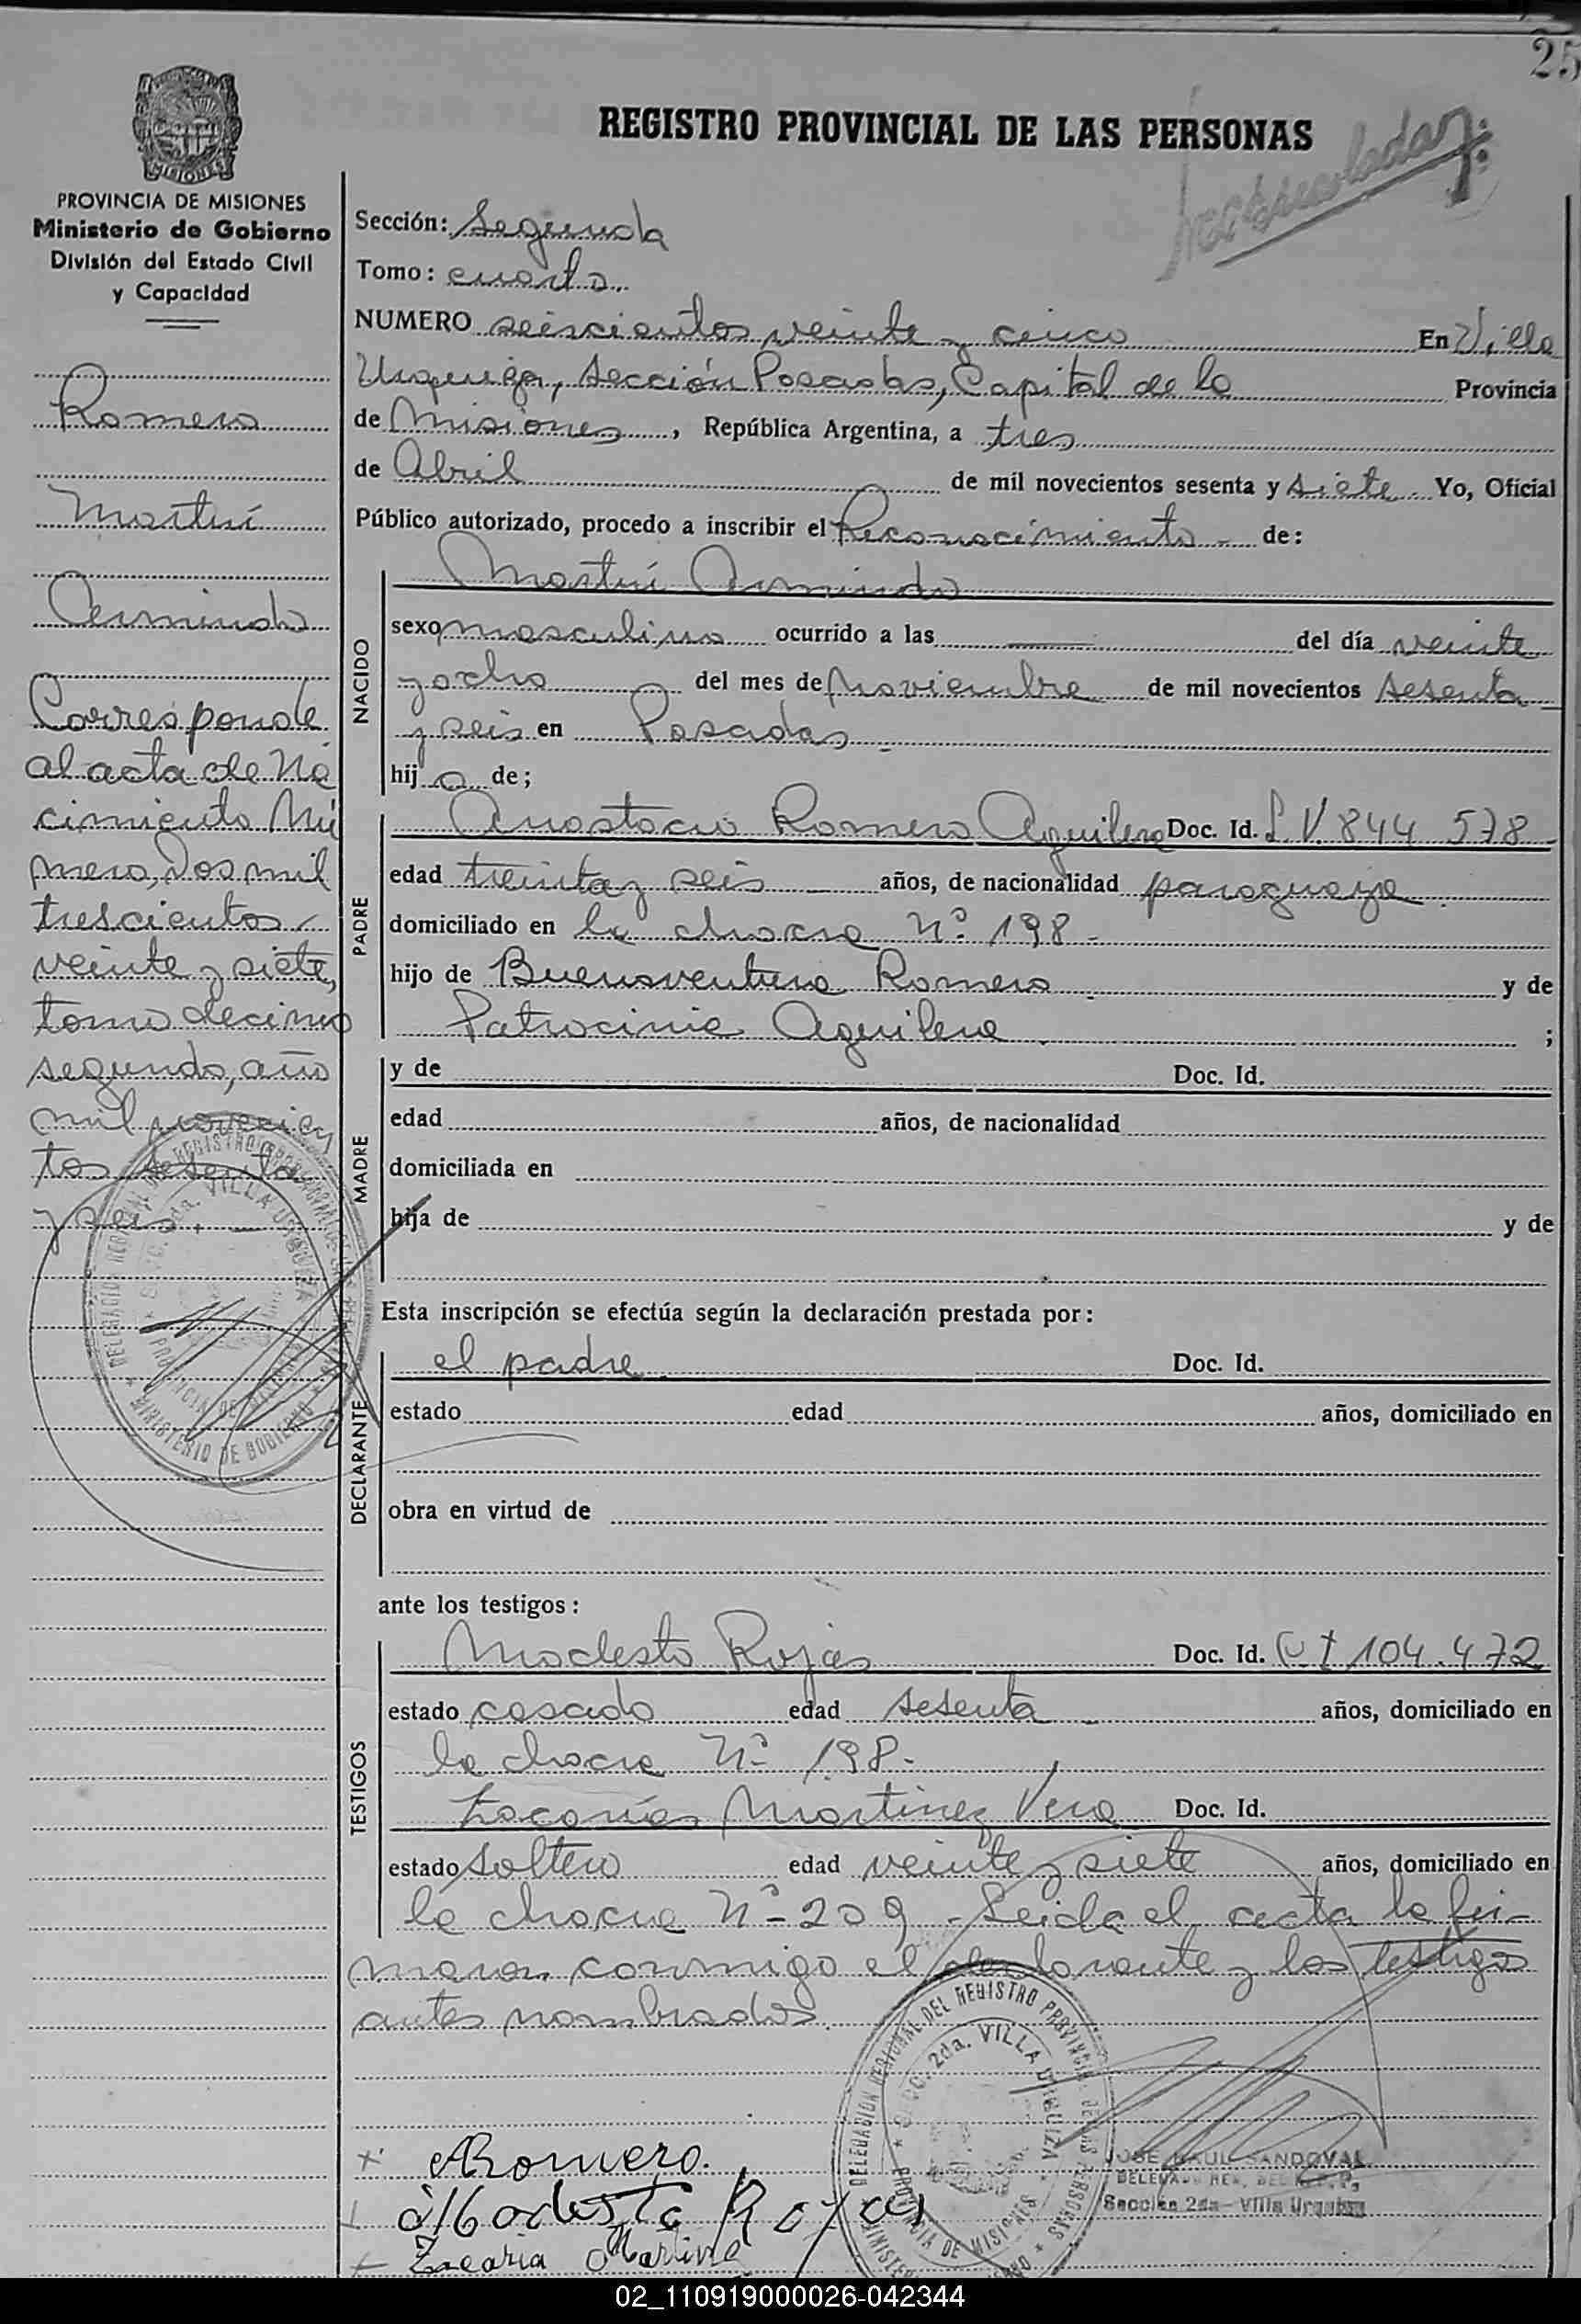 25
REGISTRO PROVINCIAL DE LAS PERSONAS
MISIONES
PROVINCIA DE MISIONES
Ministerio de Gobierno
División del Estado Civil
y Capacidad
Romero
Martín
Armindo
Corresponde
al acta de Na
cimiento Nú
mero, dos mil
trescientos
veinte y siete,
tomo decimo
segundo, año
mil novecien
tos sesenta
y seis. -
Sección: Segunda
Tomo: cuarto.
NUMERO seiscientos veinte y cinco En Villa
Urquiza, Sección Posadas, Capital de la Provincia
de Misiones, República Argentina, a tres
de Abril de mil novecientos sesenta y siete. Yo, Oficial
Público autorizado, procedo a inscribir el Reconocimiento - de:
NACIDO
Martín Armindo
sexo masculino ocurrido a las — del día veinte
y ocho del mes de Noviembre de mil novecientos sesenta
y seis en Posadas -
hijo de;
PADRE
Anastacio Romero Aguilera Doc. Id. L.V. 844 578
edad treinta y seis años, de nacionalidad paraguaya.
domiciliado en la chacra Nº 198 -
hijo de Buenaventura Romero y de
Patrocinia Aguilera ;
MADRE
y de Doc. Id.
edad años, de nacionalidad
domiciliada en
hija de y de
Esta inscripción se efectúa según la declaración prestada por:
DECLARANTE
el padre Doc. Id.
estado edad años, domiciliado en
obra en virtud de
ante los testigos:
TESTIGOS
Modesto Rojas Doc. Id. C I 104.472
estado casado edad sesenta - años, domiciliado en
la chacra Nº 198 -
Zacarías Martinez Vera Doc. Id.
estado soltero edad veinte y siete años, domiciliado en
la chacra Nº 209 - Leida el acta la fir-
maron conmigo el declarante y los testigos
antes nombrados.
DELEGACION REGIONAL DEL REGISTRO PROVINCIAL DE LAS PERSONAS
SECC. 2da. VILLA URQUIZA
PROVINCIA DE MISIONES
MINISTERIO DE GOBIERNO
x ARomero.
Modesto Rojas
Zacaria Martine
JOSE RAUL SANDOVAL
Sección 2da - Villa Urquiza
02_110919000026-042344